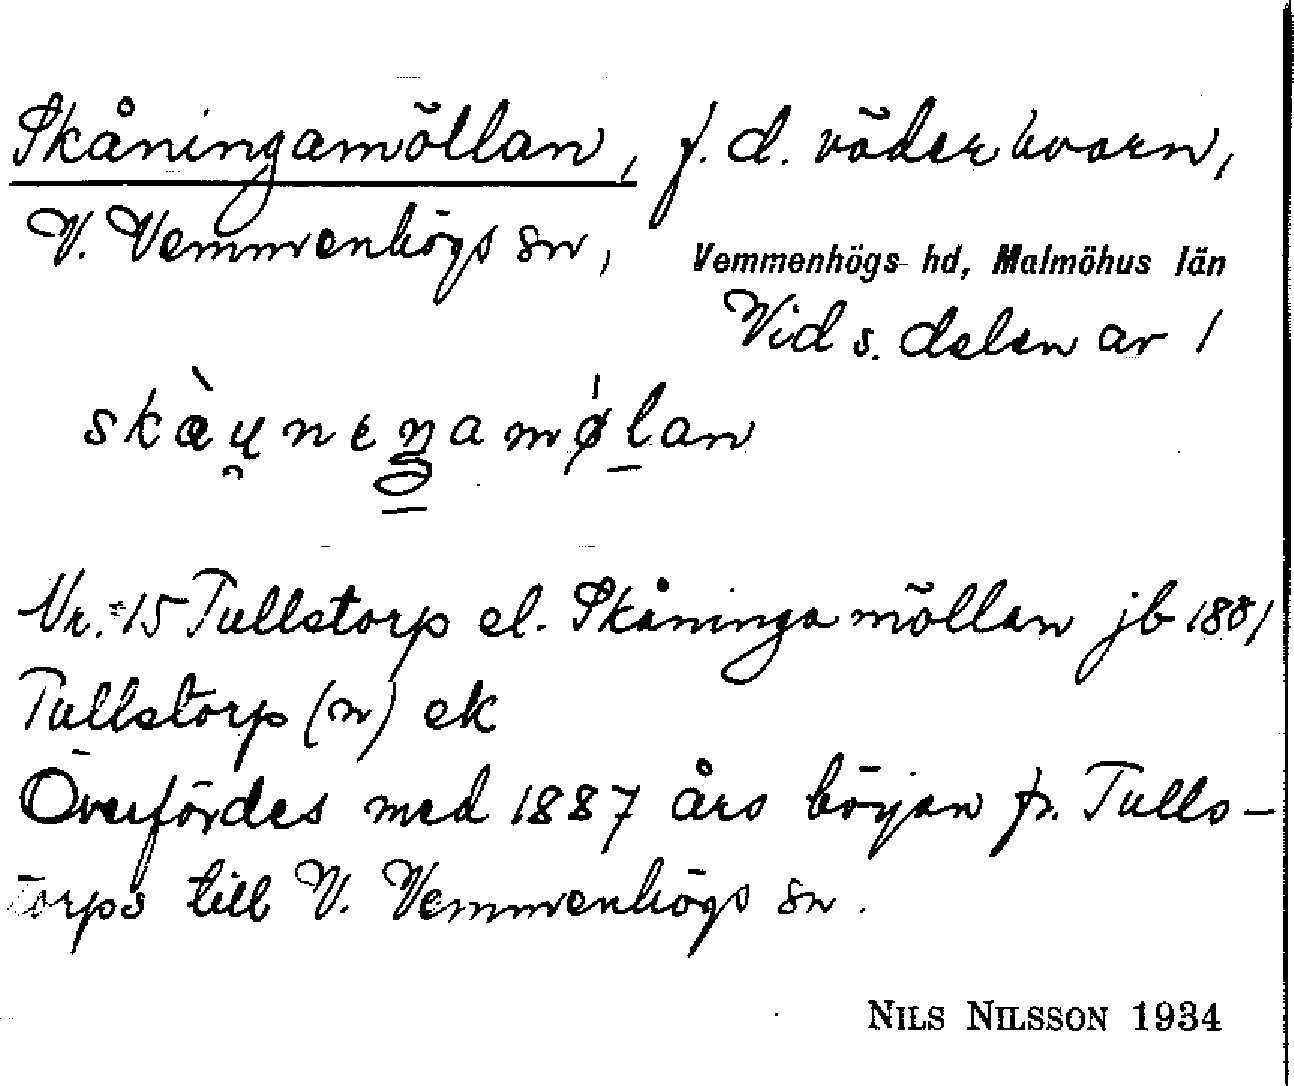 Skåningamöllan, f. d. väderkvarn,
V. Vemmenhögs sn,
Vemmenhögs hd, Malmöhus län
Vid s. delen av 1
skæ̀u̯neŋamǿlan
Nr. 15 Tullstorp el. Skåningamöllan jb 1881
Tullstorp (n) ek
Överfördes med 1887 års början fr. Tulls-
torps till V. Vemmenhögs sn.
NILS NILSSON 1934